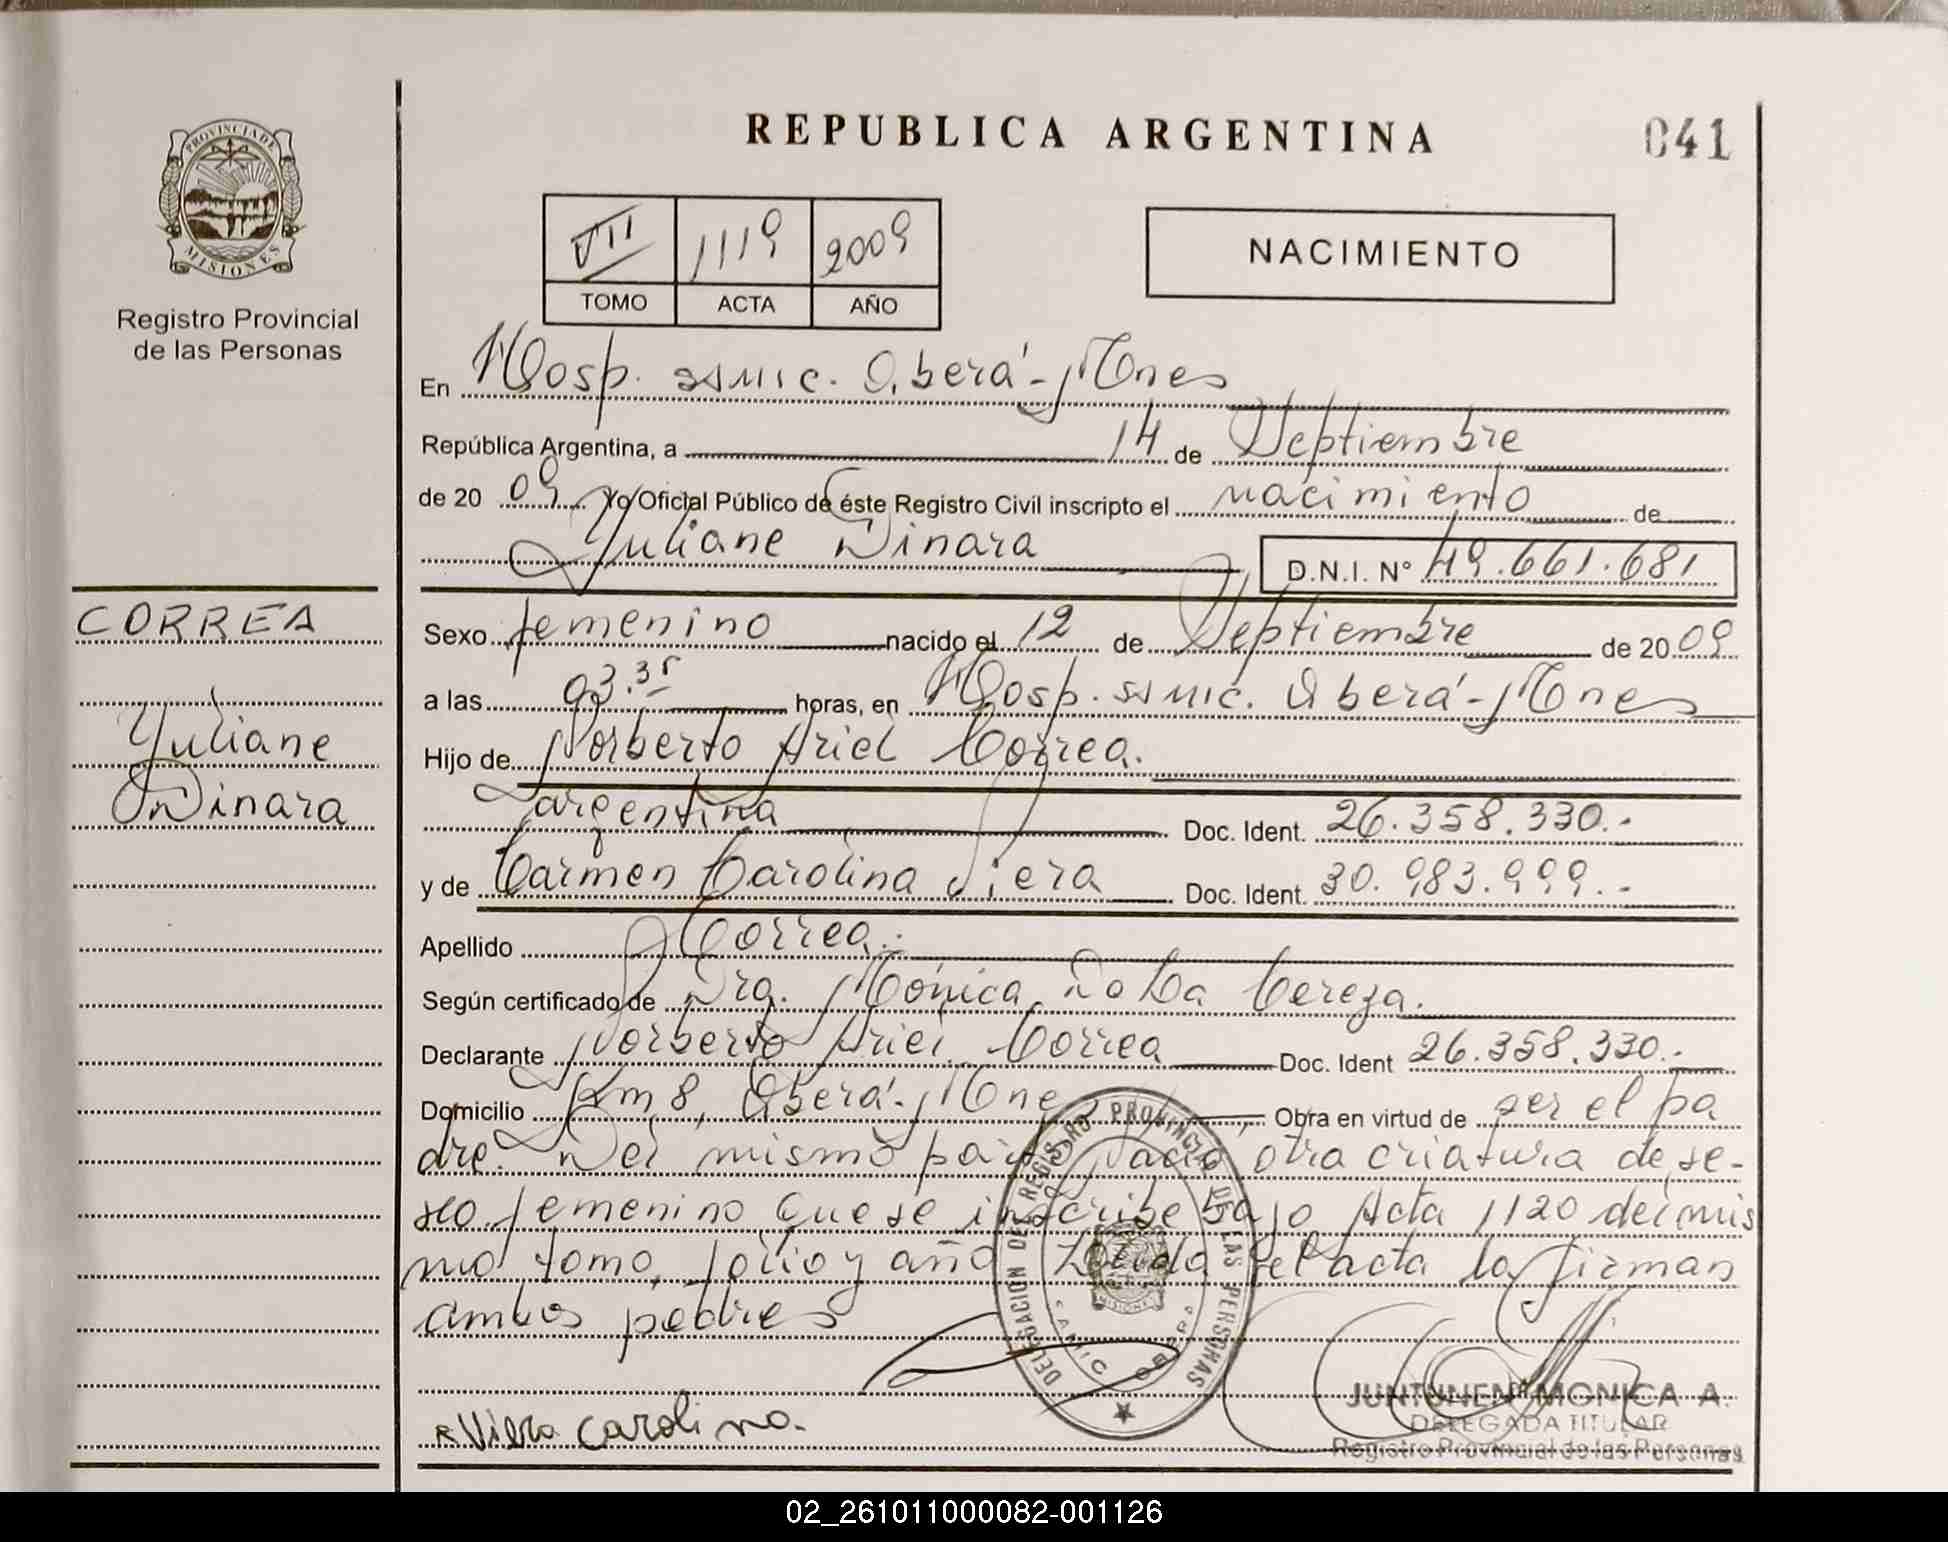 REPUBLICA ARGENTINA
041
PROVINCIA DE
MISIONES
Registro Provincial
de las Personas
VII 1119 2009
TOMO ACTA AÑO
NACIMIENTO
En Hosp. SAMIC. Oberá - Mnes
República Argentina, a 14 de Septiembre
de 20 09 Yo Oficial Público de éste Registro Civil inscripto el nacimiento de
Yuliane Dinara
D.N.I. Nº 49.661.681
CORREA
Yuliane
Dinara
Sexo femenino nacido el 12 de Septiembre de 20 09
a las 03.35 horas, en Hosp. SAMIC. Oberá - Mnes
Hijo de Norberto Ariel Correa.
argentina Doc. Ident. 26.358.330.-
y de Carmen Carolina Viera Doc. Ident. 30.983.999.-
Apellido Correa.-
Según certificado de Dra. Mónica Cereza.
Declarante Norberto Ariel Correa Doc. Ident 26.358.330.-
Domicilio Km 8, Oberá - Mnes Obra en virtud de ser el pa
dre. Del mismo parto nació otra criatura de se-
xo femenino que se inscribe bajo Acta 1120 del mis
mo tomo, folio y año Leída el acta la firman
ambos padres
Viera Carolina.
DELEGACIÓN DEL REGISTRO PROVINCIAL DE LAS PERSONAS
MISIONES
SAMIC OBERA
JUNTUNEN MONICA A.
DELEGADA TITULAR
Registro Provincial de las Personas
02_261011000082-001126